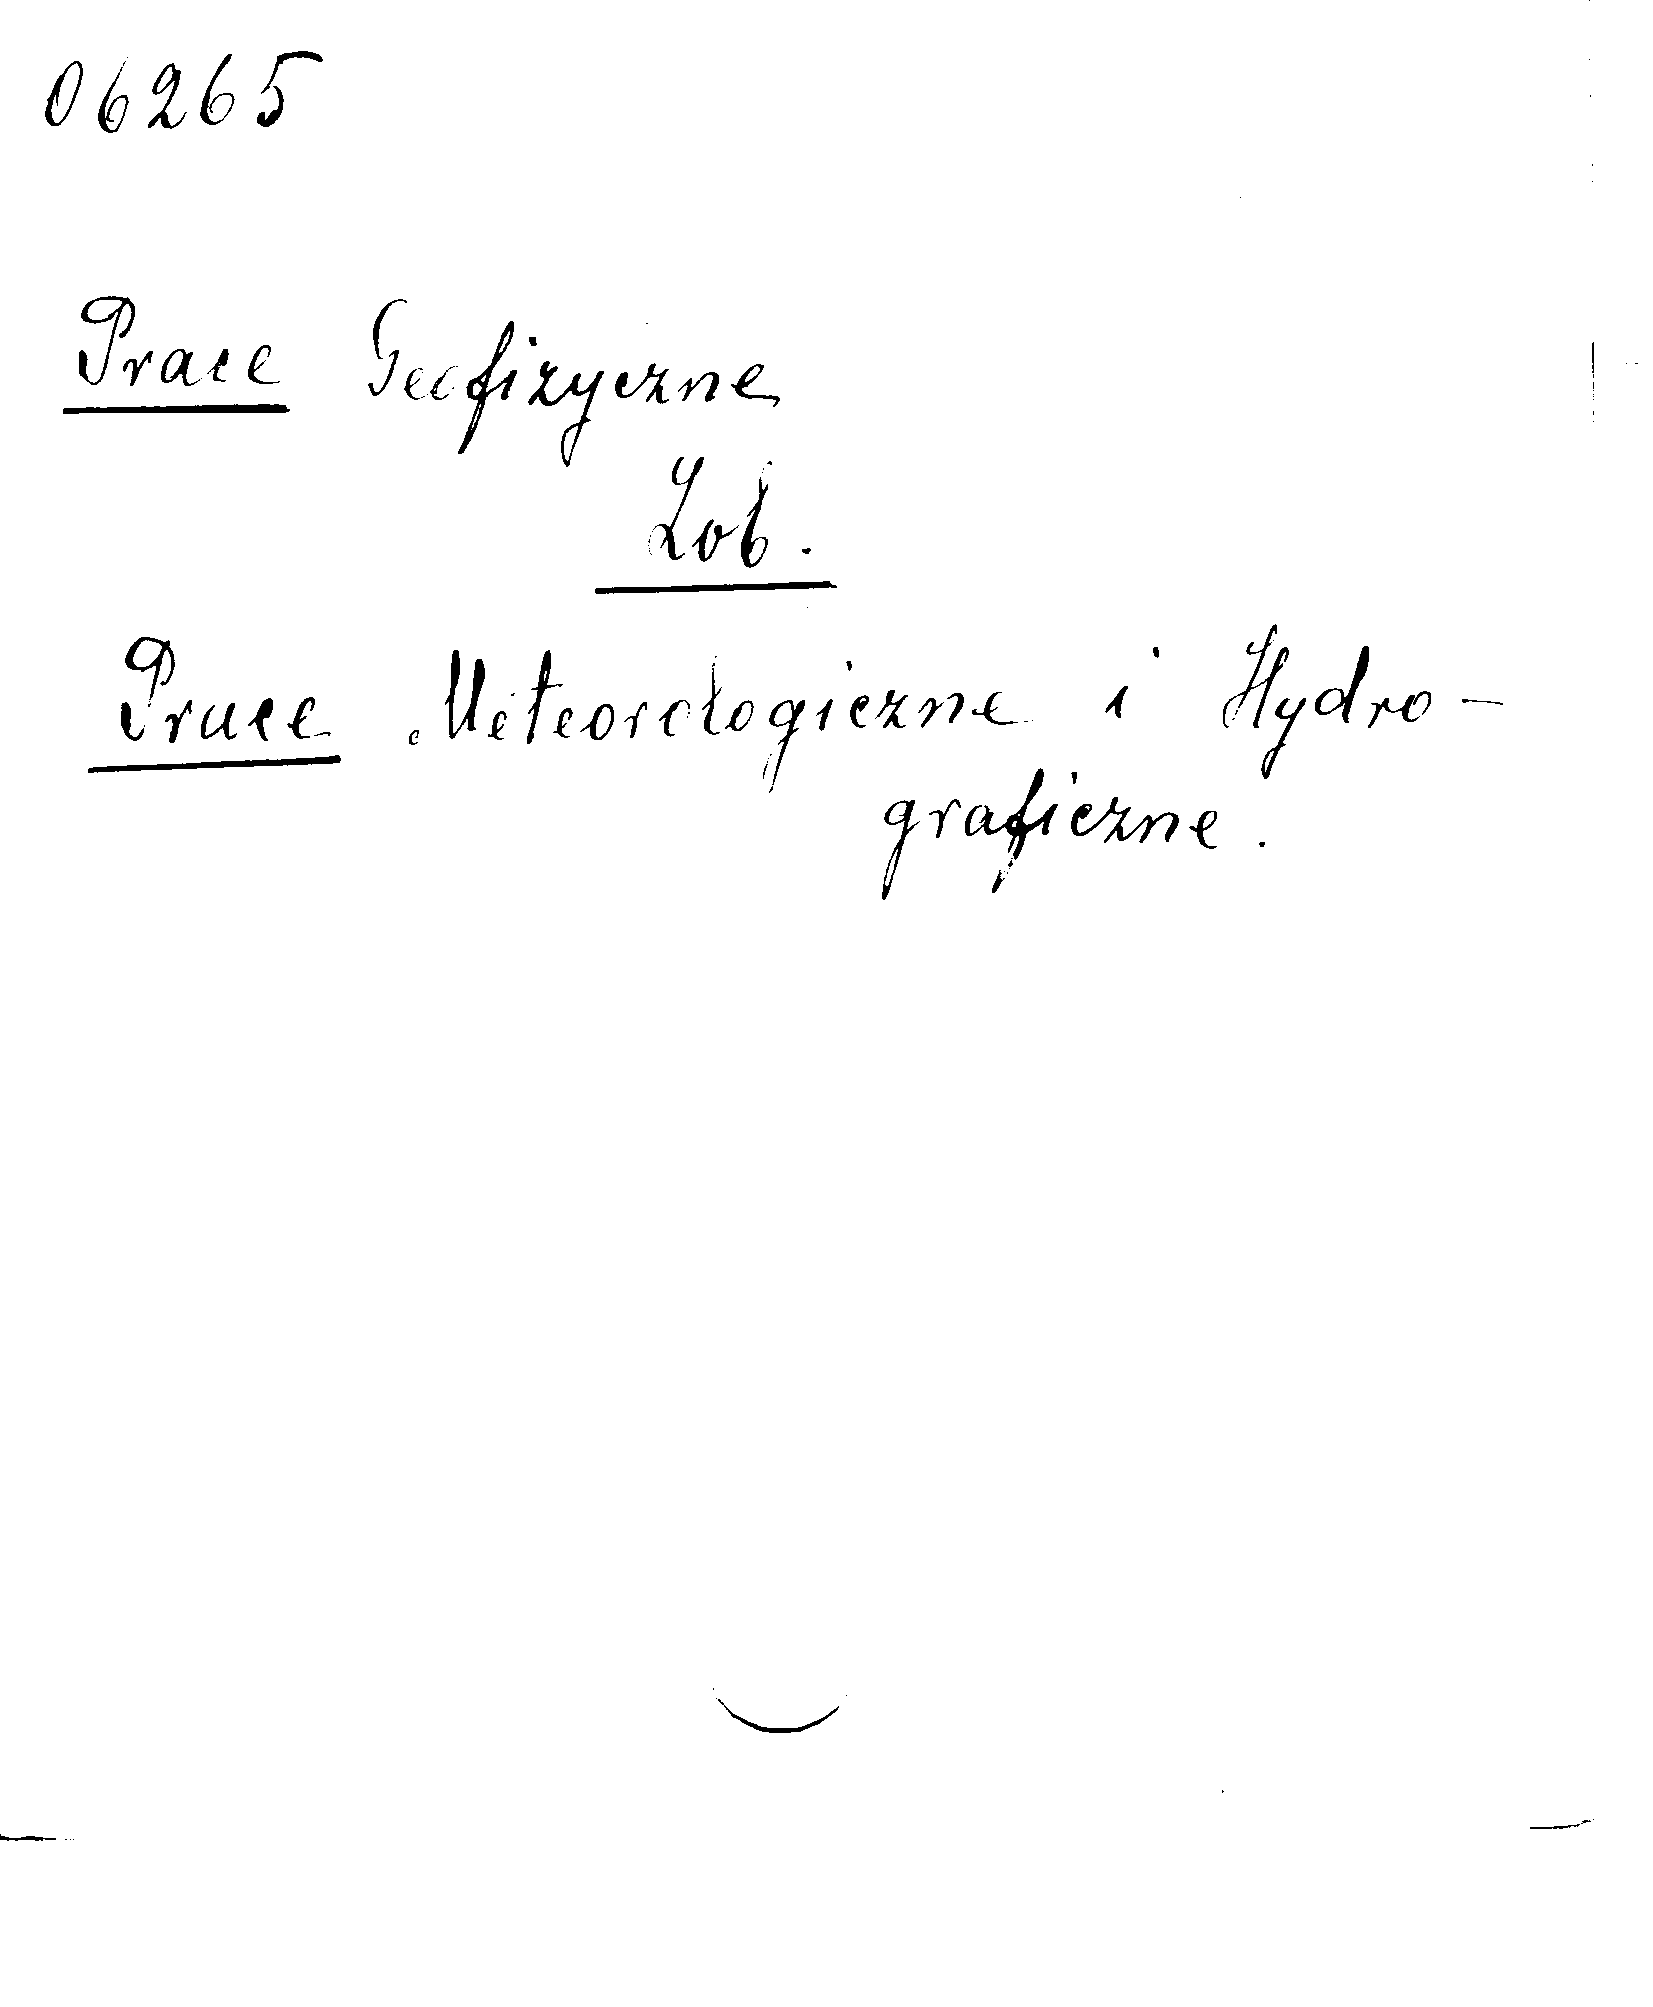 06265
Prace Geofizyczne
Zob.
Prace Meteorologiczne i Hydro-
graficzne.